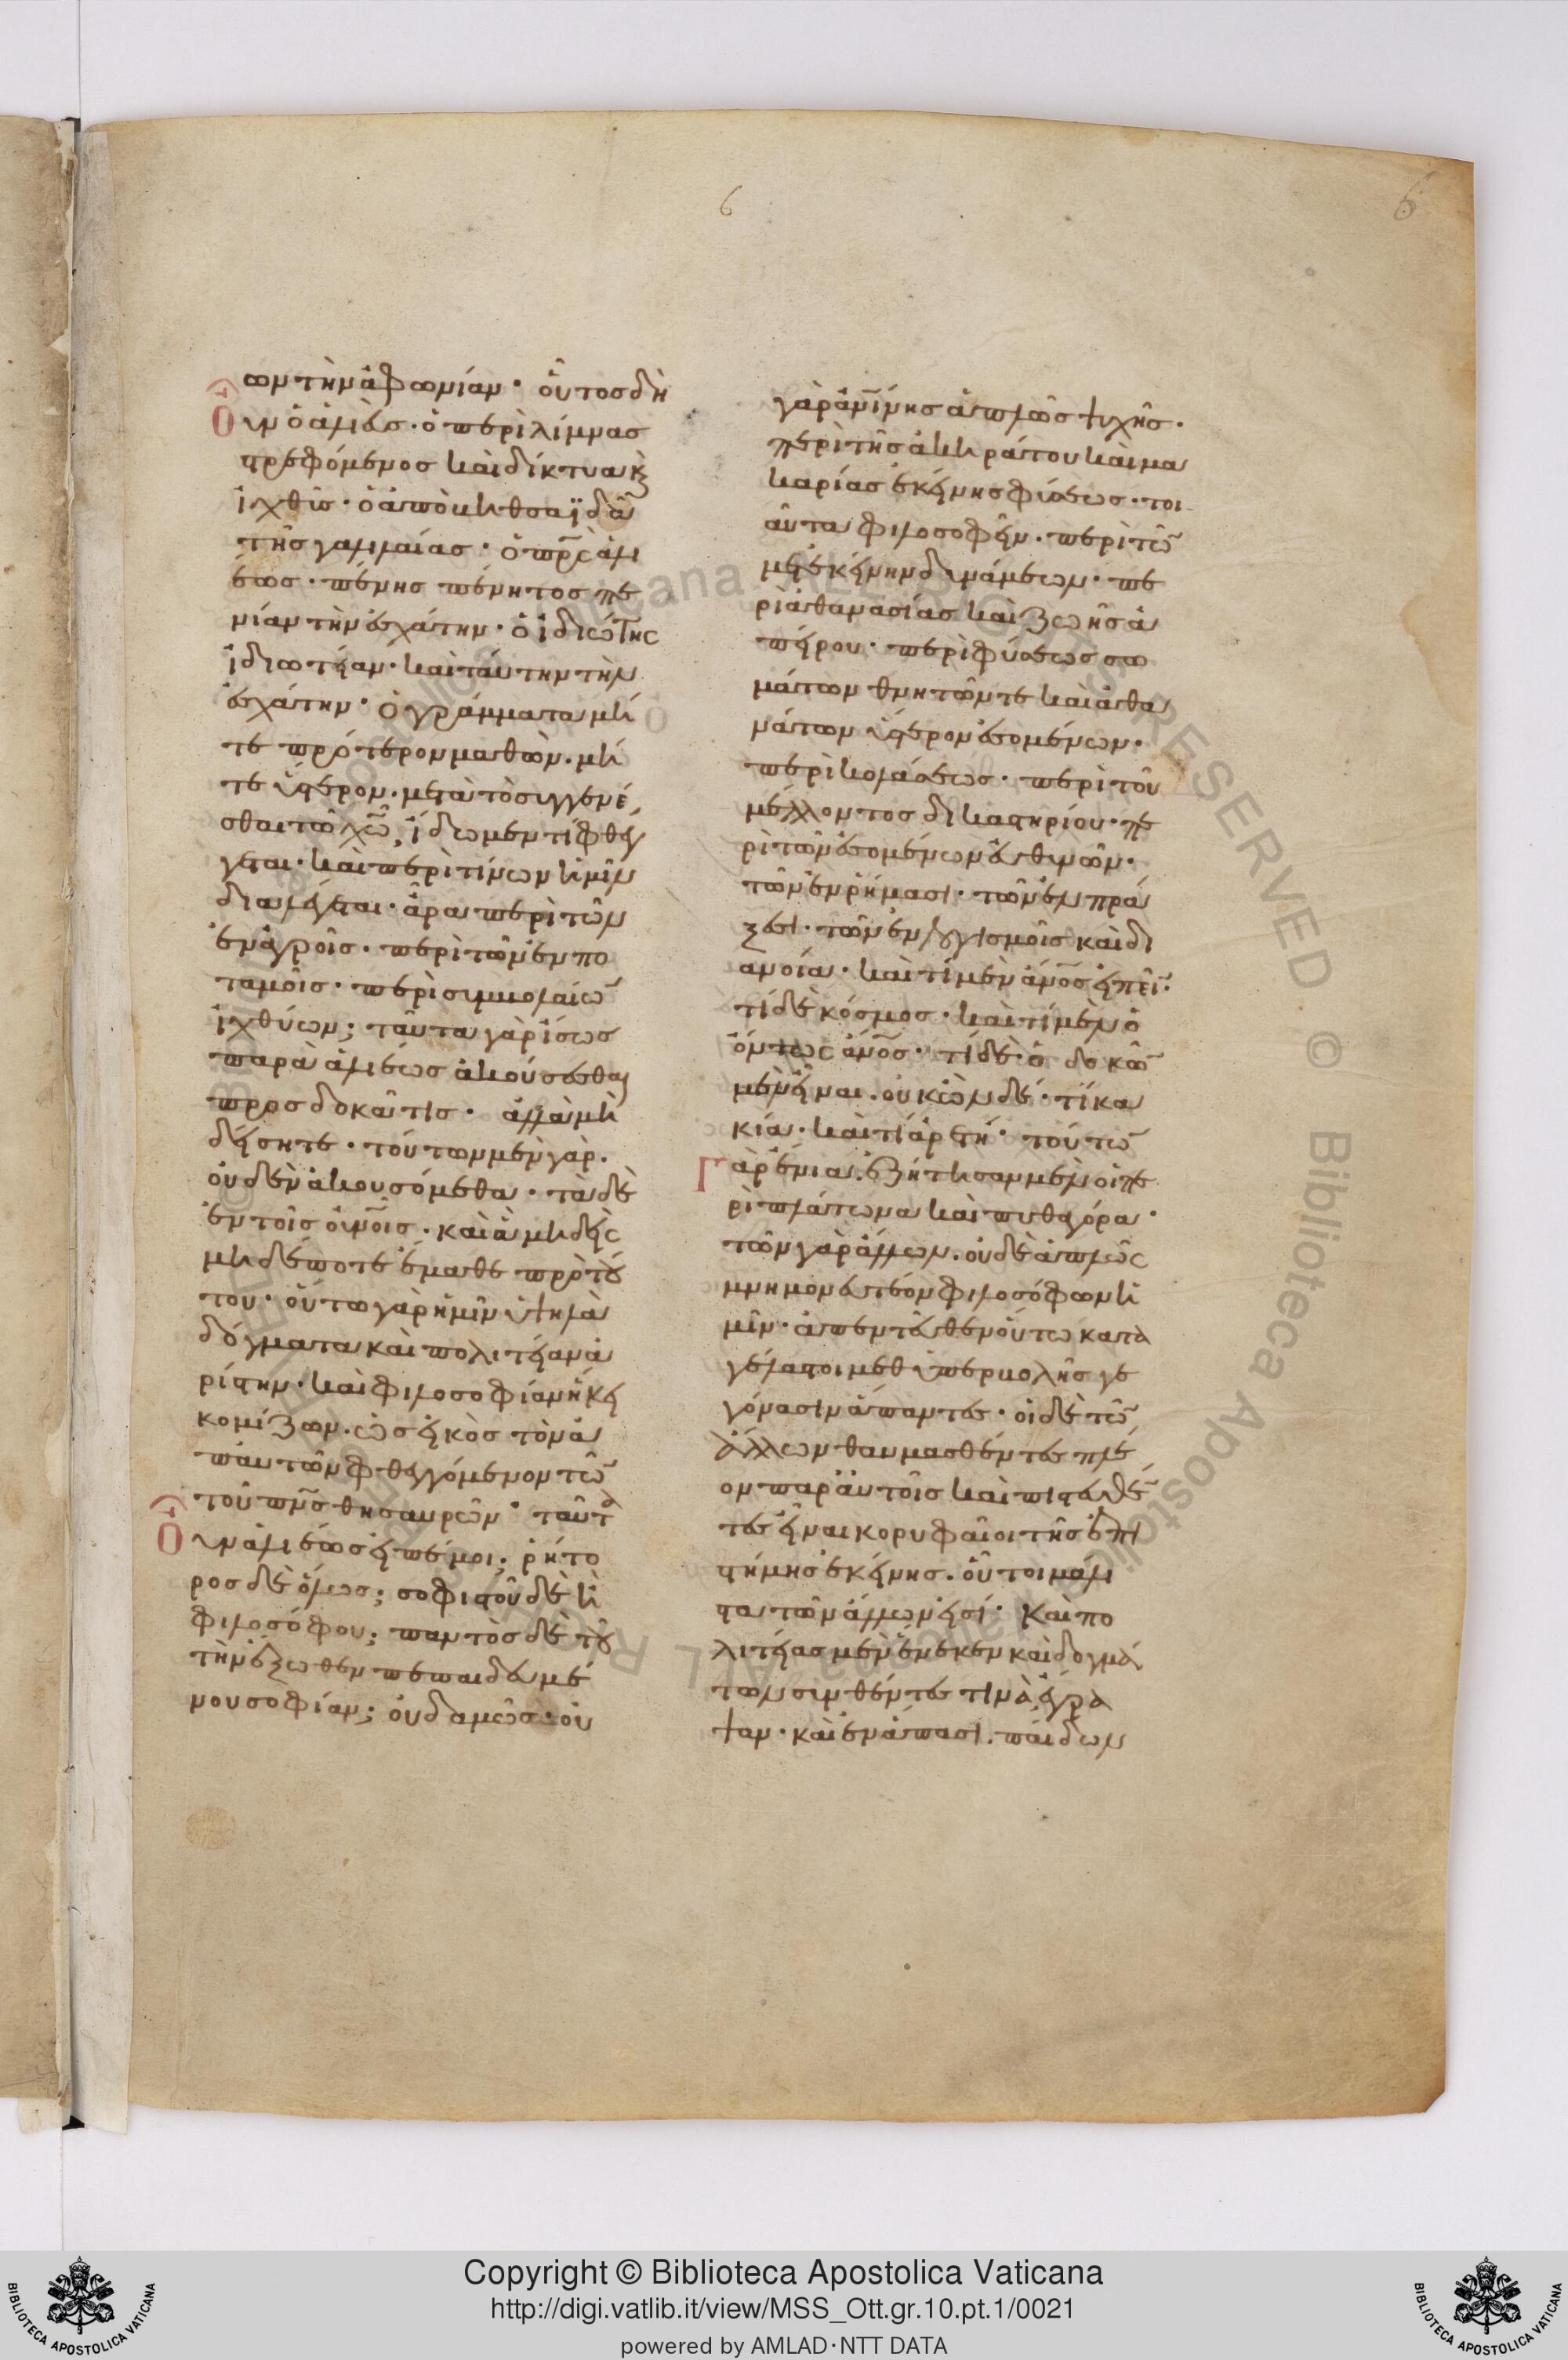 6
6
ων τὴν ἀφωνίαν· οὗτος δὴ
Οὖν ὁ ἁλιεὺς· ὁ περὶ λίμνας
στρεφόμενος καὶ δίκτυα κ(αὶ)
ἰχθῦς· ὁ ἀπὸ βηθσαϊδὰ
τῆς γαλιλαίας· ὁ πρ̅ς ἁλι
έως· πένης πένητος πε
νίαν τὴν ἐσχάτην· ὁ ἰδιώτης
ἰδιωτείαν· καὶ ταύτην τὴν
ἐσχάτην· ὁ γράμματα μή
τε πρότερον μαθὼν· μή
τε ὕστερον· μετὰ τὸ συγγενέ
σθαι τῶ χω̅, ἴδωμεν τί φθέγ
γεται· καὶ περὶ τίνων ἡμῖν
διαλέγεται· ἆρα περὶ τῶν
ἐν ἀγροῖς· περὶ τῶν ἐν πο
ταμοῖς· περὶ συμβολαίων
ἰχθύων; ταῦτα γὰρ ἴσως
παρὰ ἁλιέως ἀκούσεσθαι
προσδοκᾶ τίς· ἀλλὰ μὴ
δείσητε· τούτων μὲν γὰρ·
οὐδὲν ἀκουσόμεθα· τὰ δὲ
ἐν τοῖς οὐνοῖς· καὶ ἃ μηδεὶς
μηδέποτε ἔμαθε πρὸ τού
του· οὕτω γὰρ ἡμῖν ὑψηλὰ
δόγματα καὶ πολιτείαν ἀ
ρίστην· καὶ φιλοσοφίαν ἥκει
κομίζων· ὡς εἰκὸς τὸν ἀ
πὸ αὐτῶν φθεγγόμενον τῶν
τοῦ πν̅ς θησαυρῶν· ταῦτ
Οὖν ἁλιέως εἰπέ μοι; ῥήτο
ρος δὲ ὅλως; σοφιστοῦ δὲ ἢ
φιλοσόφου; παντὸς δὲ τοῦ
τὴν ἔξωθεν πεπαιδευμέ
νου σοφίαν; οὐδαμῶς· οὐ
γὰρ ἀν̅ίνης ἁπλῶς ψυχῆς·
περὶ τῆς ἀκηράτου καὶ μα
καρίας ἐκείνης φύσεως· τοι
αῦτα φιλοσοφεῖν· περὶ τῶν
μετ' ἐκείνην δυνάμεων· πε
ρὶ ἀθανασίας καὶ ζωῆς ἀ
πείρου· περὶ φύσεως σω
μάτων θνητῶν τε καὶ ἀθα
νάτων ὕστερον ἐσομένων·
περὶ κολάσεως· περὶ τοῦ
μέλλοντος δικαστηρίου· πε
ρὶ τῶν ἐσομένων εὐθυνῶν·
τῶν ἐν ῥήμασι· τῶν ἐν πρά
ξεσι· τῶν ἐν λογισμοῖς καὶ δι
ανοία· καὶ τί μὲν ἀν̅ος εἰπεῖν·
τί δὲ κόσμος· καὶ τί μὲν ὁ
ὄντως ἀν̅ος· τί δὲ· ὁ δοκῶν
μὲν εἶναι· οὐκ ὢν δέ· τί κα
κία· καὶ τί ἀρετή· τούτων
Γὰρ ἔνια· ἐζήτησαν μὲν οἱ πε
ρὶ πλάτωνα καὶ πυθαγόρα·
τῶν γὰρ ἄλλων· οὐδὲ ἁπλῶς
μνημονευτέον φιλοσόφων ἡ
μῖν· ἅπερ ἐντεῦθεν οὕτω κατὰ
γέλαστοι μεθ' ὑπερβολῆς γε
γόνασιν ἅπαντες· οἱ δὲ τῶν
ἄλλων θαυμασθέντες πλέ
ον παρ' αὐτοῖς καὶ πιστευθέν
τες εἶναι κορυφαῖοι τῆς ἐπι
στήμης ἐκείνης· οὗτοι μάλι
στα τῶν ἄλλων εἰσί· καὶ πο
λιτείας μὲν ἕνεκεν καὶ δογμά
των συνθέντες τινὰ ἔγρα
ψαν· καὶ ἐν ἅπασι· παίδων
Copyright © Biblioteca Apostolica Vaticana
http://digi.vatlib.it/view/MSS_Ott.gr.10.pt.1/0021
powered by AMLAD·NTT DATA